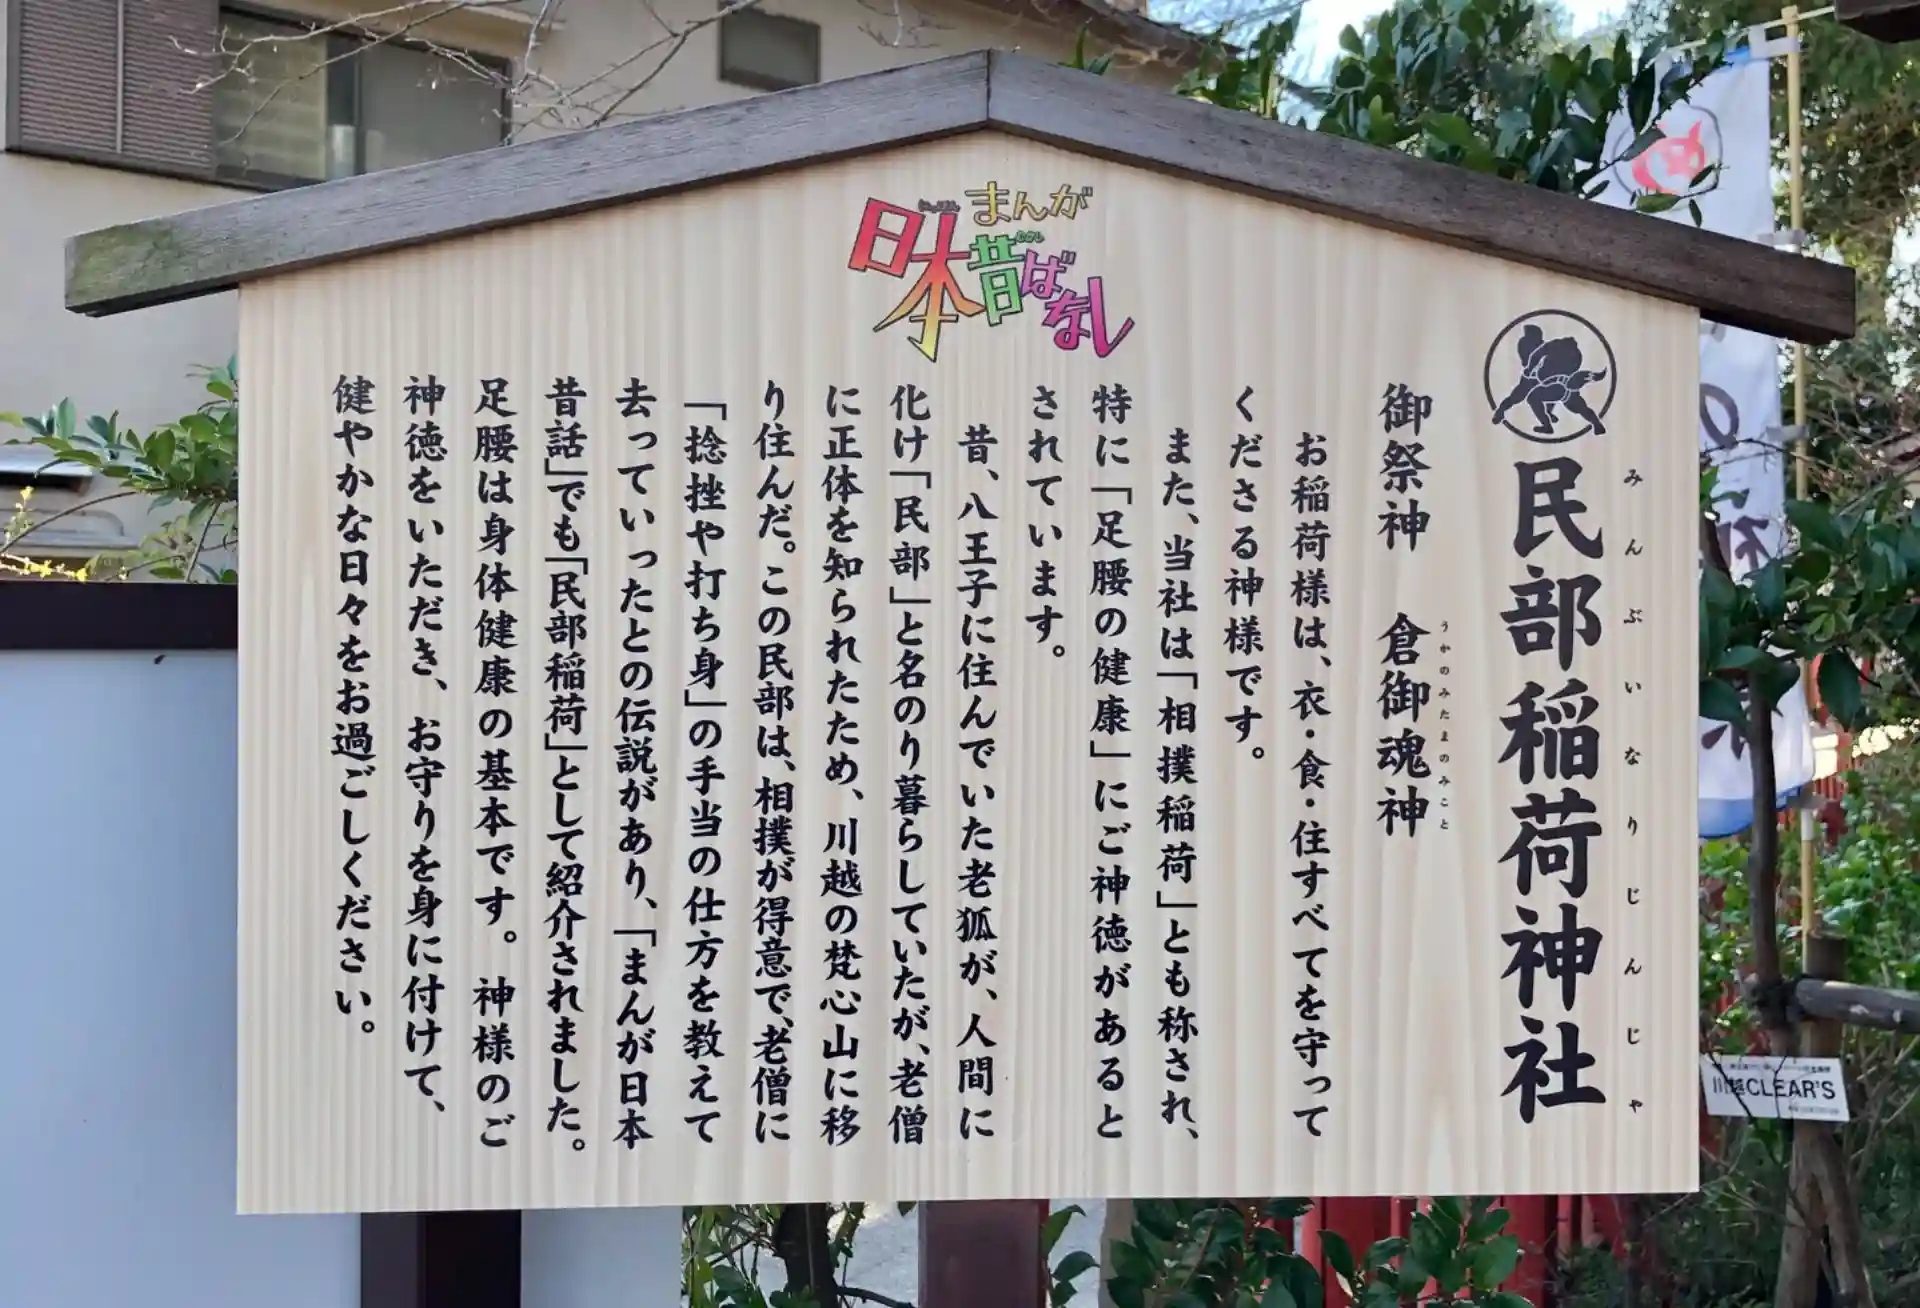 まんが
にっぽん
日本
むかし
昔ばなし
民部稲荷神社
みんぶいなりじんじゃ
御祭神　倉御魂神
うかのみたまのみこと
お稲荷様は、衣・食・住すべてを守って
くださる神様です。
また、当社は「相撲稲荷」とも称され、
特に「足腰の健康」にご神徳があると
されています。
昔、八王子に住んでいた老狐が、人間に
化け「民部」と名のり暮らしていたが、老僧
に正体を知られたため、川越の梵心山に移
り住んだ。この民部は、相撲が得意で、老僧に
「捻挫や打ち身」の手当の仕方を教えて
去っていったとの伝説があり、「まんが日本
昔話」でも「民部稲荷」として紹介されました。
足腰は身体健康の基本です。神様のご
神徳をいただき、お守りを身に付けて、
健やかな日々をお過ごしください。
川越CLEAR'S